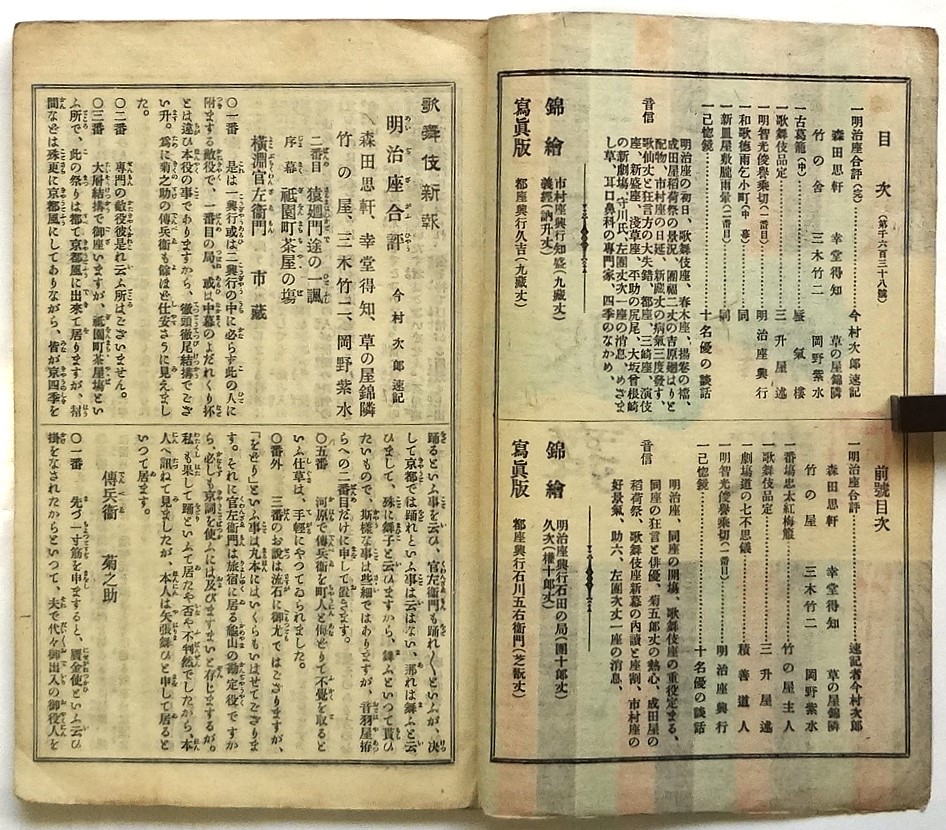 目次（第千六百三十八號）
一明治座合評（完）…今村次郎速記
森田思軒 幸堂得知 草の屋錦隣
竹の舍 三木竹二 岡野紫水
一古葛籠（中）
一歌舞伎品定…三升屋述
一明智光俊譽乘切（一番目）…明治座興行
一和歌德雨乞小町（中幕）…同
一新皿屋敷朧雨暈（二番目）…同
一己惚鏡…十名優の談話
音信
明治座の初日、歌舞伎座、春木座、揚卷の襠、
成田屋稻荷祭の景況、團福二丈の吉原廻はりと
配物、市村座の日延、新藏丈の病氣三度發す、
歌仙丈と狂言方の大失錯、都座、三崎座、演伎
座、新盛座、淺草座、平助の尻尾、大坂曾根崎
の新劇場、守川氏、左團丈次一座の消息、めさま
し草、耳口鼻科の專門家、四季のなかめ、
錦繪
市村座興行知盛（九藏丈）
義經（訥升丈）
寫眞版 都座興行久吉（九藏丈）
前號目次
一明治座合評…速記者今村次郎
森田思軒 幸堂得知 草の屋錦隣
竹の屋 三木竹二 岡野紫水
一番塲忠太紅梅箙…竹の屋主人
一歌舞伎品定…三升屋述
一劇塲道の七不思儀…積善道人
一明智光俊譽乘切（一番目）…明治座興行
一己惚鏡…十名優の談話
音信
明治座、同座の開塲、歌舞伎座の重役定まる、
同座の狂言と俳優、菊五郎丈の熱心、成田屋の
稻荷祭、歌舞伎座新幕の內讀と座割、市村座の
好景氣、助六、左團次丈一座の消息、
錦繪
明治座興行石田の局（團十郎丈）
久次（權十郎丈）
寫眞版 都座興行石川五右衞門（芝翫丈）
歌舞伎新報
明治座合評 今村次郎速記
森田思軒、幸堂得知、草の屋錦隣
竹の屋、三木竹二、岡野紫水
二番目 猿廻門途の一諷
序幕 祗園町茶屋の塲
橫淵官左衞門 市藏
〇一番 是は一興行或は二興行の中に必らす此の人に
附まする敵役で、一番目の局、或は中幕のよだれくり抔
とは違ひ本役の事でありますから、徹頭徹尾結搆でござ
い升。爲に菊之助の傳兵衞も餘ほど仕安さうに見えまし
た。
〇二番 專門の敵役彼是れ云ふ所はございません。
〇三番 大層結搆で御座いますが、祗園町茶屋塲とい
ふ所で、此の祭りは都て京都風に出來て居りますが、幇
間なとは殊更に京都風にしてありながら、皆が京四季を
踊るといふ事を云ひ、官左衞門も踊れ〱といふが、決
して京都では踊れといふ事は云はない、那れは舞ふと云
ひまして、殊に舞子と云ひますから、舞ふといつて貰ひ
たいもので、斯樣な事は些細ではありますが、音羽屋拵
らへの二番目だけに申して置きます。
〇五番 河原で傳兵衞を町人と侮どりて不覺を取ると
いふ仕草は、手輕にやつてゐられました。
〇番外 三番のお說は流石に御尤ではござりますが、
「をどり」といふ事は丸本にはいくらもいはせてござりま
す。それに官左衞門は旅宿に居る龜山の勘定役ですか
ら、必しも京詞を使ふには及びますまいと存じまするが。
私も果して踊といふて居たや否や不判然でしたから、本
人へ訊ねて見ましたが、本人は矢張舞ひと申して居ると
いつて居ます。
傳兵衞 菊之助
〇一番 先づ一寸筋を申しますると、贋金使といふ云ひ
掛をなされたからといつて、夫で代々御出入の御役人を